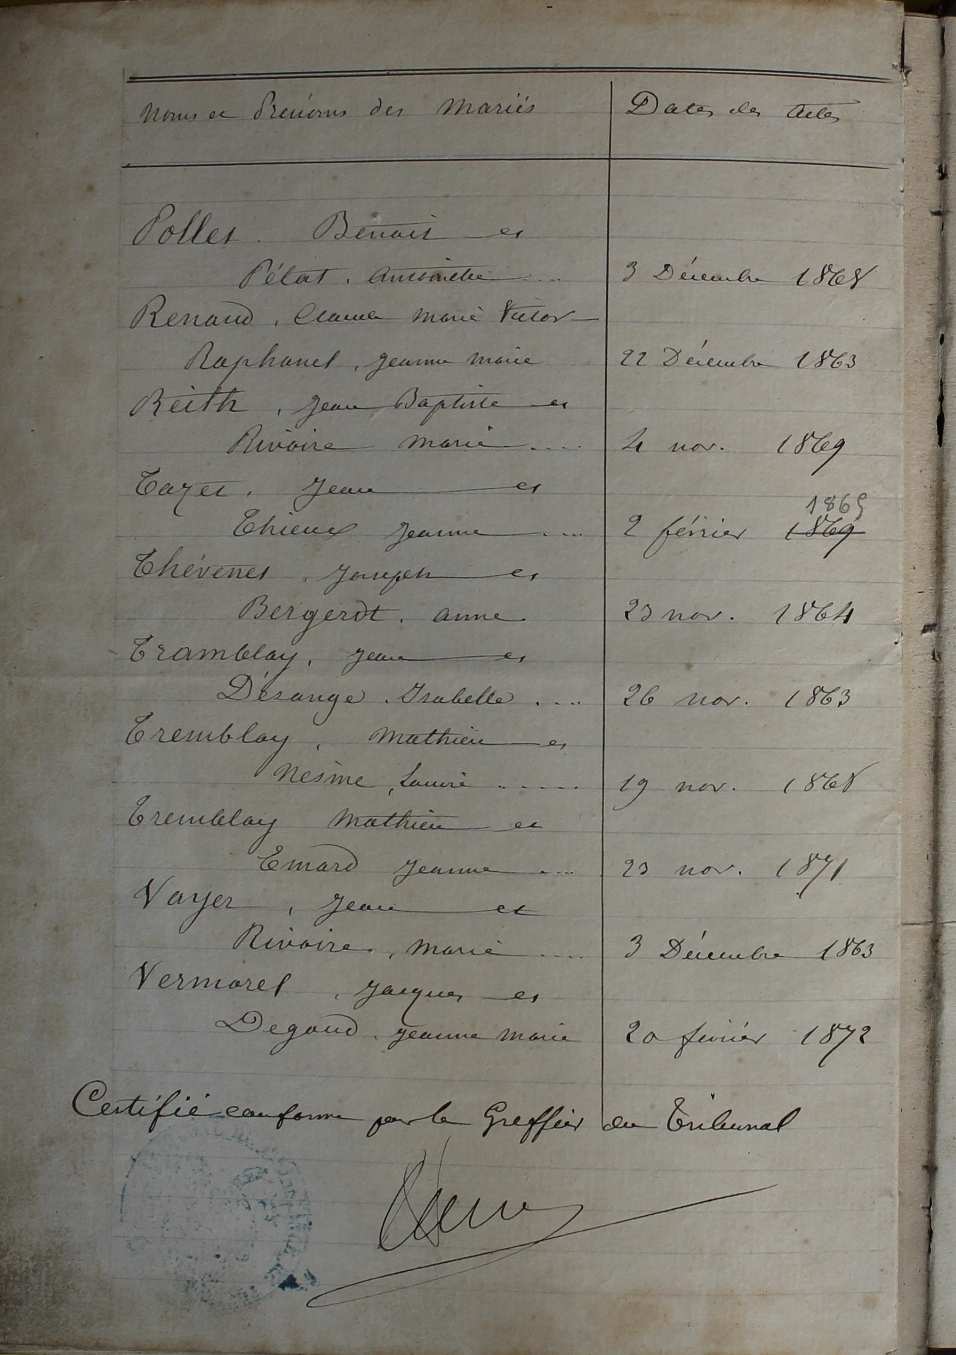 Noms et Prénoms des Mariés Dates des Actes
Pollet. Benoit et
Pélat. Antoinette .... 3 Décembre 1868
Renaud, Claude Marie Victor
Raphanel, Jeanne Marie 22 Décembre 1863
Reith, Jean Baptiste et
Rivoire Marie .... 4 nov. 1869
Tazet. Jean et
1865
Thieux Jeanne .... 2 février 1869
Thévenet, Joseph et
Bergerot. Anne 23 nov. 1864
Tramblay, Jean et
Désange. Isabelle .... 26 nov. 1863
Tremblay, Mathieu et
Nesme, Louise ..... 19 nov. 1868
Tremblay Mathieu et
Emard Jeanne .... 23 nov. 1871
Vayer, Jean et
Rivoire, Marie .... 3 Décembre 1863
Vermorel, Jacques et
Degoud. Jeanne Marie 20 février 1872
Certifié conforme par le Greffier du Tribunal